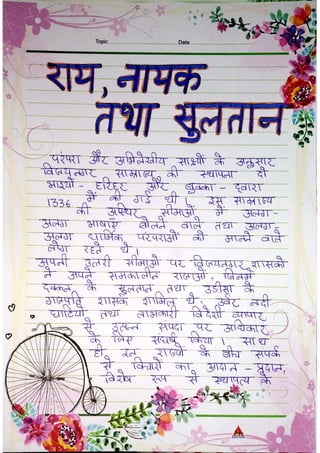 Topic Date
राय, नायक
तथा सुलतान
परंपरा और अभिलेखीय साक्ष्यों के अनुसार
विजयनगर साम्राज्य की स्थापना दो
भाइयों - हरिहर और बुक्का - द्वारा
1336 में की गई थी। इस साम्राज्य
की अस्थिर सीमाओं में अलग-
अलग भाषाएँ बोलने वाले तथा अलग-
अलग धार्मिक परंपराओं को मानने वाले
लोग रहते थे।
अपनी उतरी सीमाओं पर विजयनगर शासकों
ने अपने समकालीन राजाओं, जिनमें
दक्कन के सुलतान तथा उड़ीसा के
गजपति शासक शामिल थे, उर्वर नदी
घाटियों तथा लाभकारी विदेशी व्यापार
से उत्पन्न संपदा पर अधिकार
के लिए संघर्ष किया। साथ
ही इन राज्यों के बीच संपर्क
से विचारों का आदान - प्रदान,
विशेष रूप से स्थापत्य के